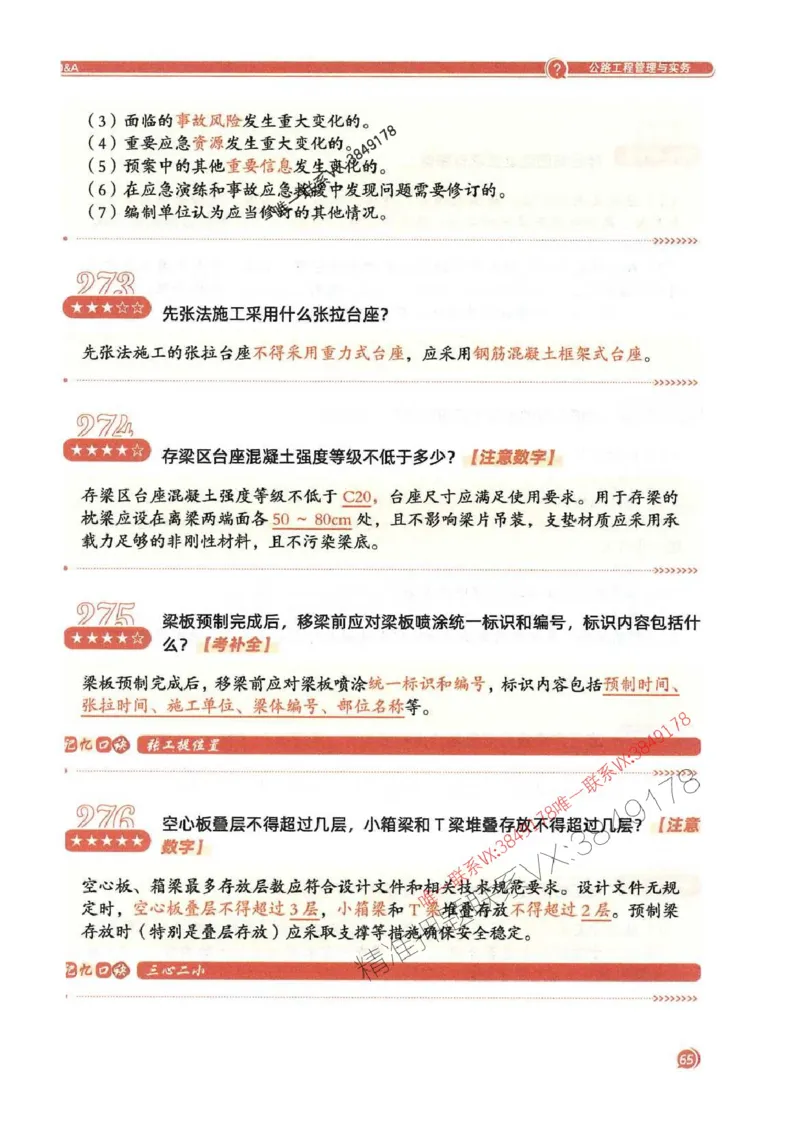 Q&A
? 公路工程管理与实务
(3)面临的事故风险发生重大变化的。
(4)重要应急资源发生重大变化的。
(5)预案中的其他重要信息发生变化的。
(6)在应急演练和事故应急救援中发现问题需要修订的。
(7)编制单位认为应当修订的其他情况。
273
★★★☆☆
先张法施工采用什么张拉台座?
先张法施工的张拉台座不得采用重力式台座,应采用钢筋混凝土框架式台座。
274
★★★★☆
存梁区台座混凝土强度等级不低于多少?【注意数字】
存梁区台座混凝土强度等级不低于 C20,台座尺寸应满足使用要求。用于存梁的
枕梁应设在离梁两端面各 50 ~ 80cm 处,且不影响梁片吊装,支垫材质应采用承
载力足够的非刚性材料,且不污染梁底。
275
★★★★☆
梁板预制完成后,移梁前应对梁板喷涂统一标识和编号,标识内容包括什
么?【考补全】
梁板预制完成后,移梁前应对梁板喷涂统一标识和编号,标识内容包括预制时间、
张拉时间、施工单位、梁体编号、部位名称等。
记忆口诀 张工提位置
276
★★★★★
空心板叠层不得超过几层,小箱梁和 T 梁堆叠存放不得超过几层?【注意
数字】
空心板、箱梁最多存放层数应符合设计文件和相关技术规范要求。设计文件无规
定时,空心板叠层不得超过 3 层,小箱梁和 T 梁堆叠存放不得超过 2 层。预制梁
存放时(特别是叠层存放)应采取支撑等措施确保安全稳定。
记忆口诀 三心二小
65
唯一联系VX:3849178
唯一联系VX:3849178唯一联系VX:3849178
精准押题联系VX:3849178